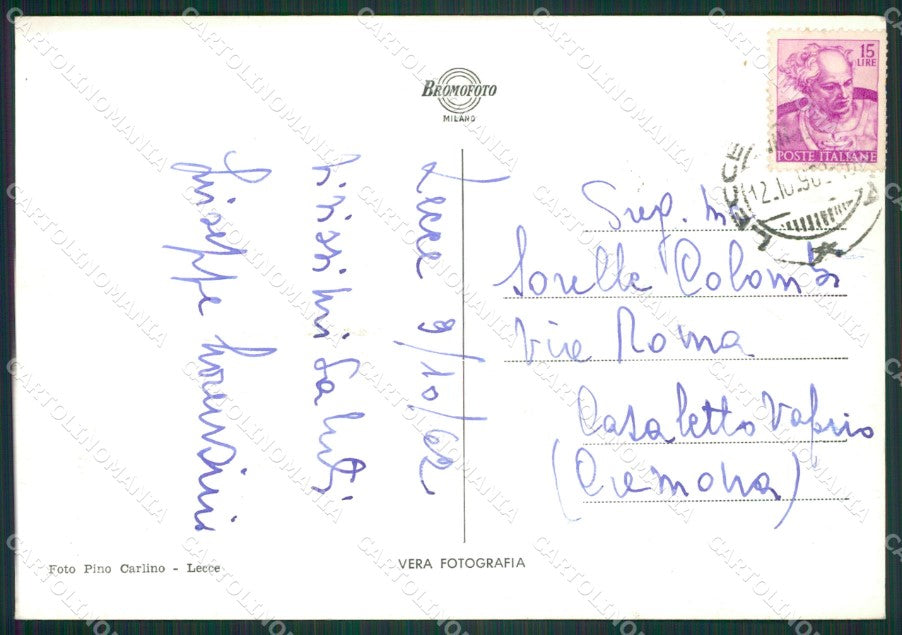 BROMOFOTO
MILANO
15
LIRE
POSTE ITALIANE
LECCE
12.10.
Lecce 9/10/62
Vivissimi Saluti
Giuseppe
Sorelle Colombi
Via Roma
Casaletto Vaprio
(Cremona)
Foto Pino Carlino - Lecce
VERA FOTOGRAFIA
CARTOLINOMANIA